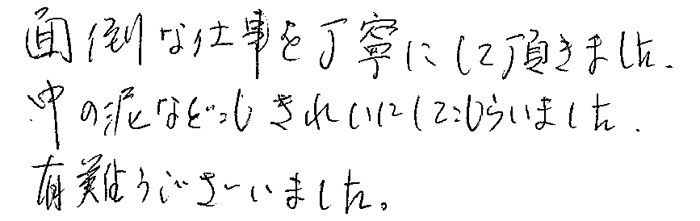 面倒な仕事を丁寧にして頂きました.
中の泥などもきれいにしてもらいました.
有難うございました。